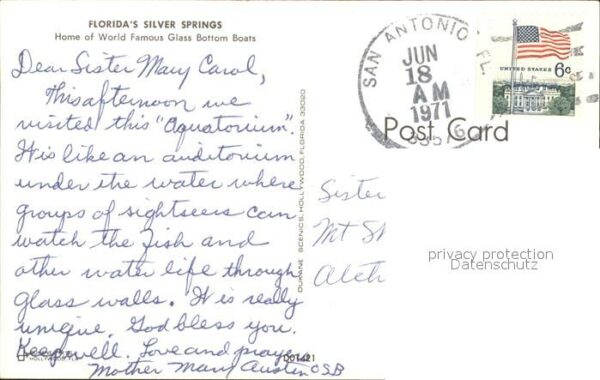 FLORIDA'S SILVER SPRINGS
Home of World Famous Glass Bottom Boats
Dear Sister Mary Carol,
This afternoon we
visited this "Aquatorium".
It is like an auditorium
under the water where
groups of sightseers can
watch the fish and
other water life through
glass walls. It is really
unique. God bless you.
Keep well. Love and prayers
Mother Mary Austin OSB
DUKANE SCENICS, HOLLYWOOD, FLORIDA 33020
SAN ANTONIO, FL.
JUN
18
AM
1971
UNITED STATES 6c
Post Card
Sister
Mt St
Atch
privacy protection
Datenschutz